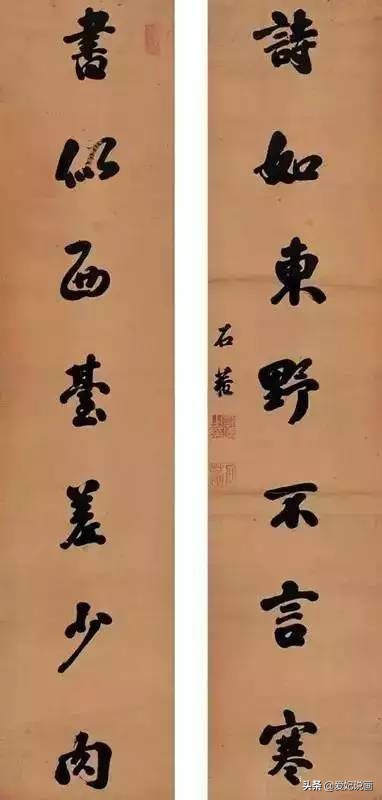 詩如東野不言寒
石菴
書似西臺差少肉
头条 @爱妃说画